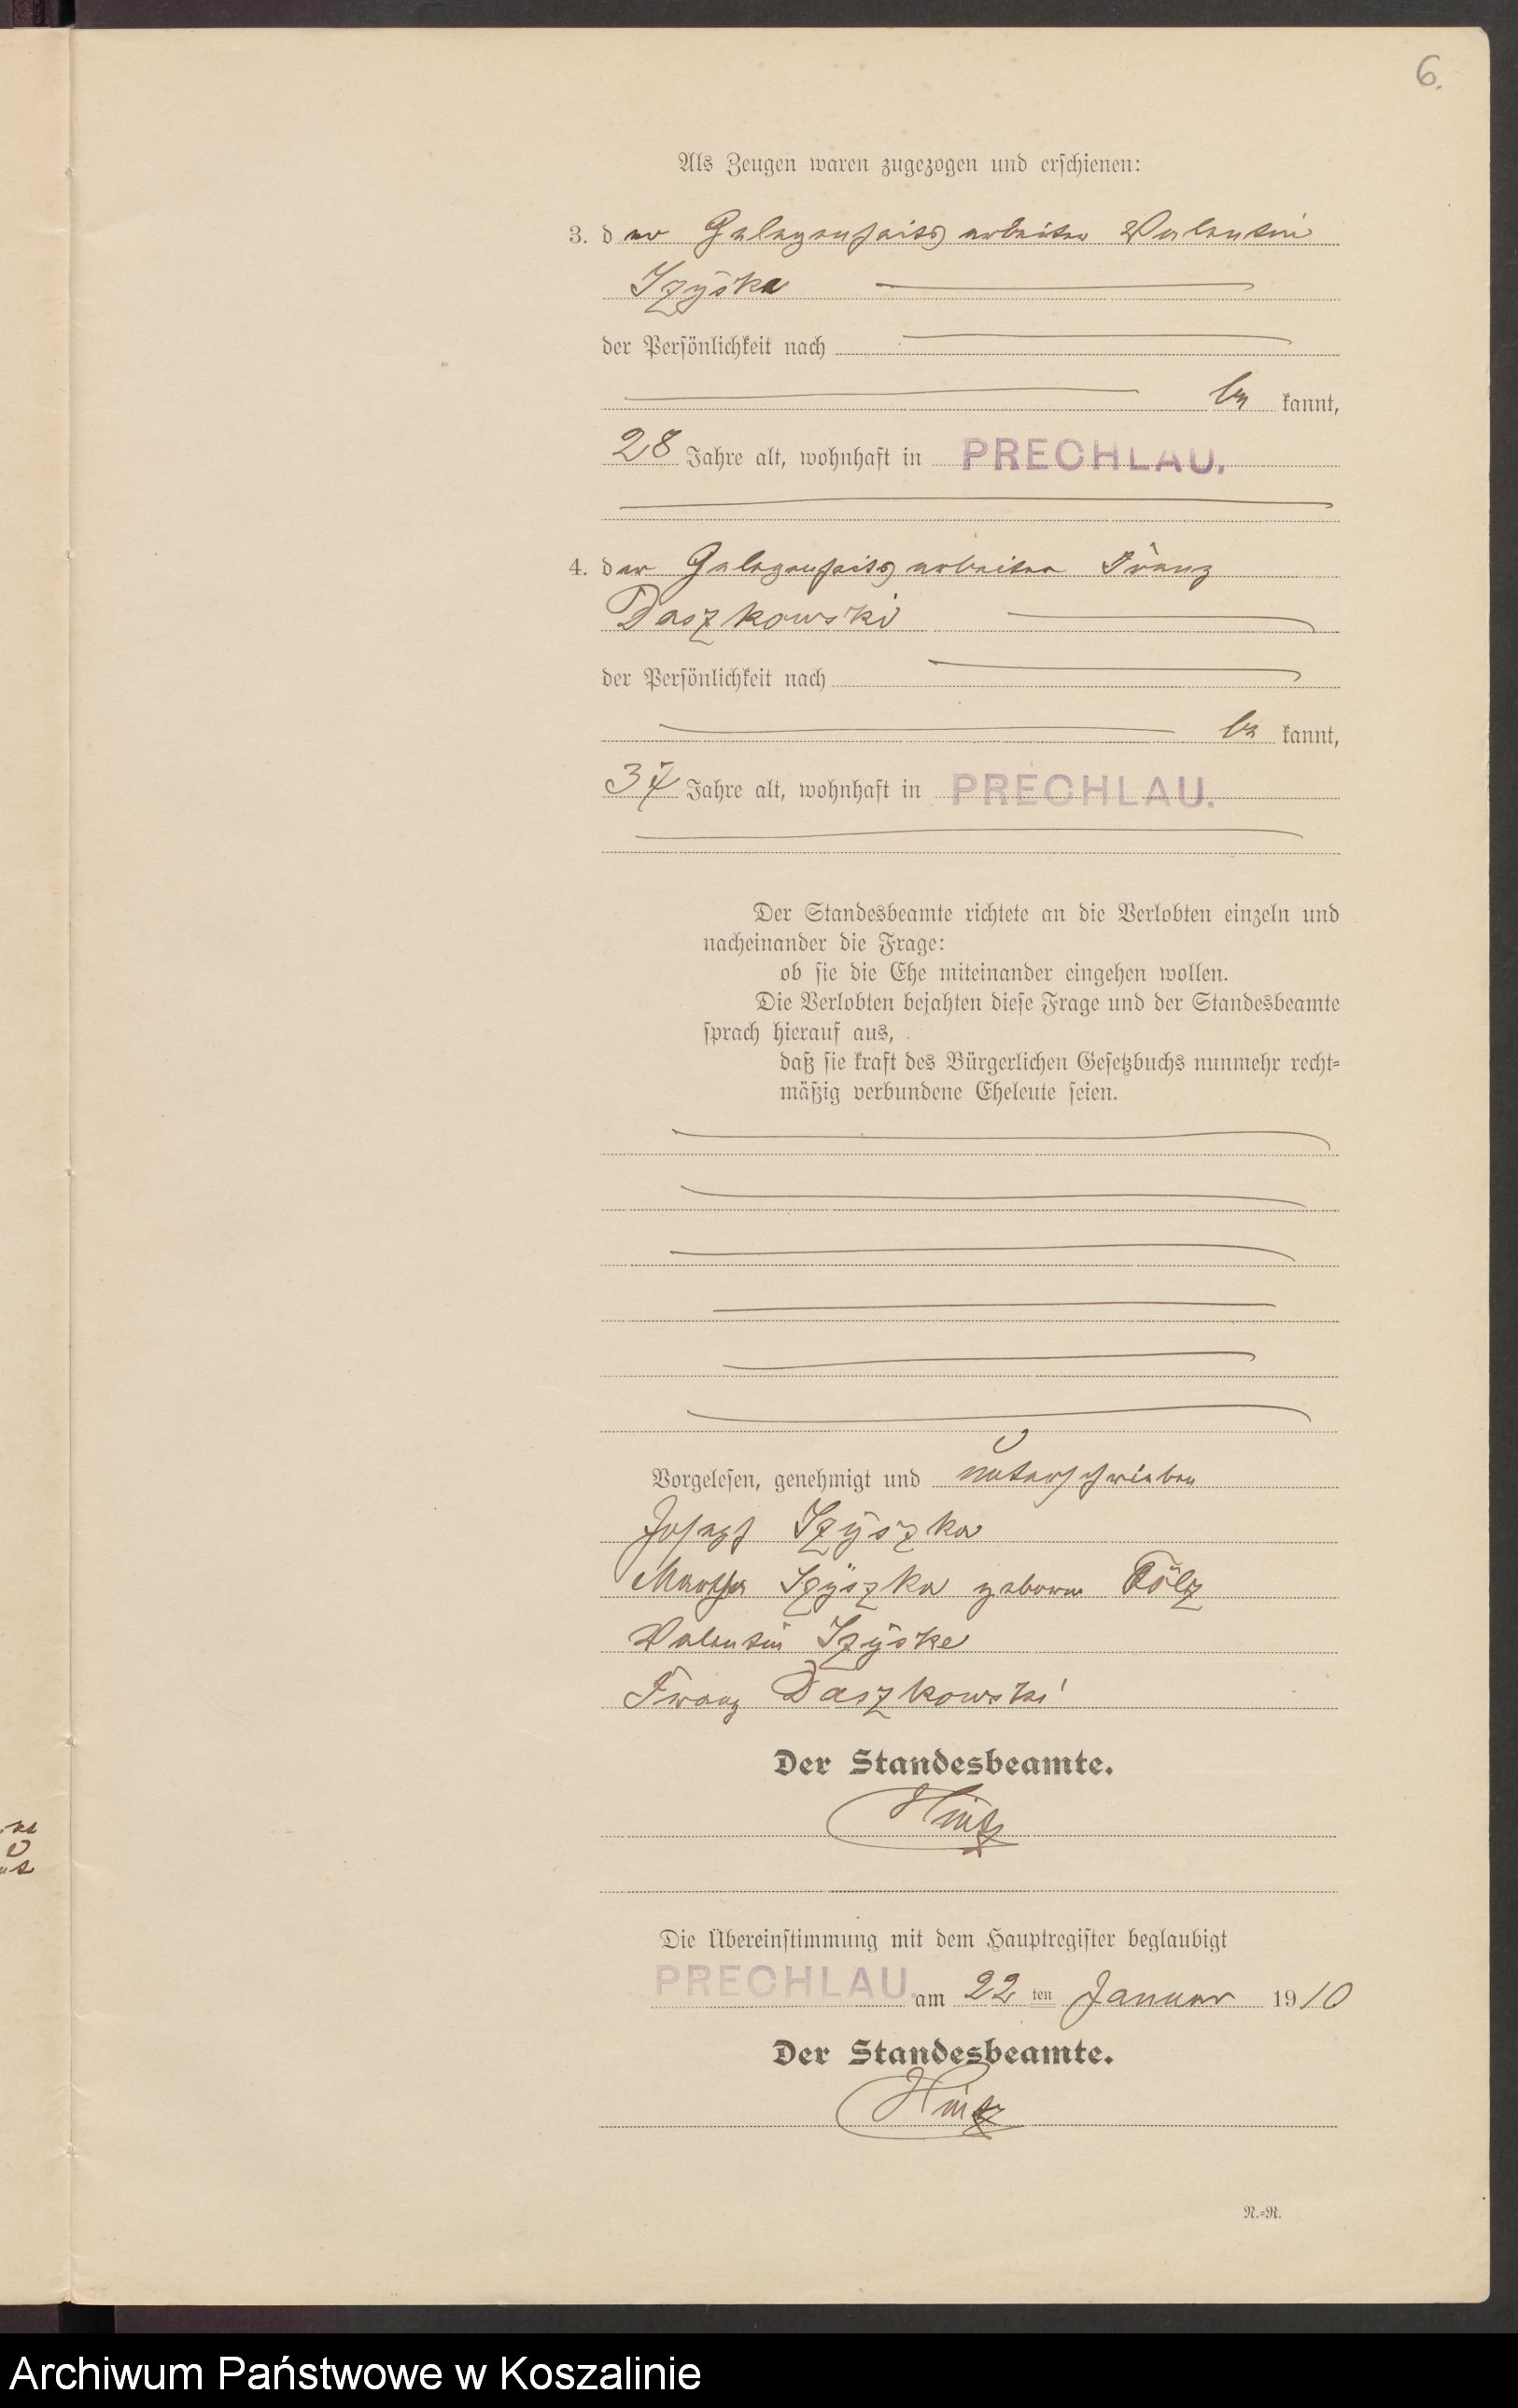 6.
Als Zeugen waren zugezogen und erschienen:
3. der Gelegenheitsarbeiter Valentin
Szyska
der Persönlichkeit nach
be kannt,
28 Jahre alt, wohnhaft in PRECHLAU.
4. der Gelegenheitsarbeiter Franz
Daszkowski
der Persönlichkeit nach
be kannt,
37 Jahre alt, wohnhaft in PRECHLAU.
Der Standesbeamte richtete an die Verlobten einzeln und
nacheinander die Frage:
ob sie die Ehe miteinander eingehen wollen.
Die Verlobten bejahten diese Frage und der Standesbeamte
sprach hierauf aus,
daß sie kraft des Bürgerlichen Gesetzbuchs nunmehr recht-
mäßig verbundene Eheleute seien.
Vorgelesen, genehmigt und unterschrieben
Josef Szyszka
Martha Szyszka geborne
Valentin Szyske
Franz Daszkowski
Der Standesbeamte.
Hintz
Die Übereinstimmung mit dem Hauptregister beglaubigt
PRECHLAU. am 22 ten Januar 1910
Der Standesbeamte.
Hintz
N.-R.
Archiwum Państwowe w Koszalinie